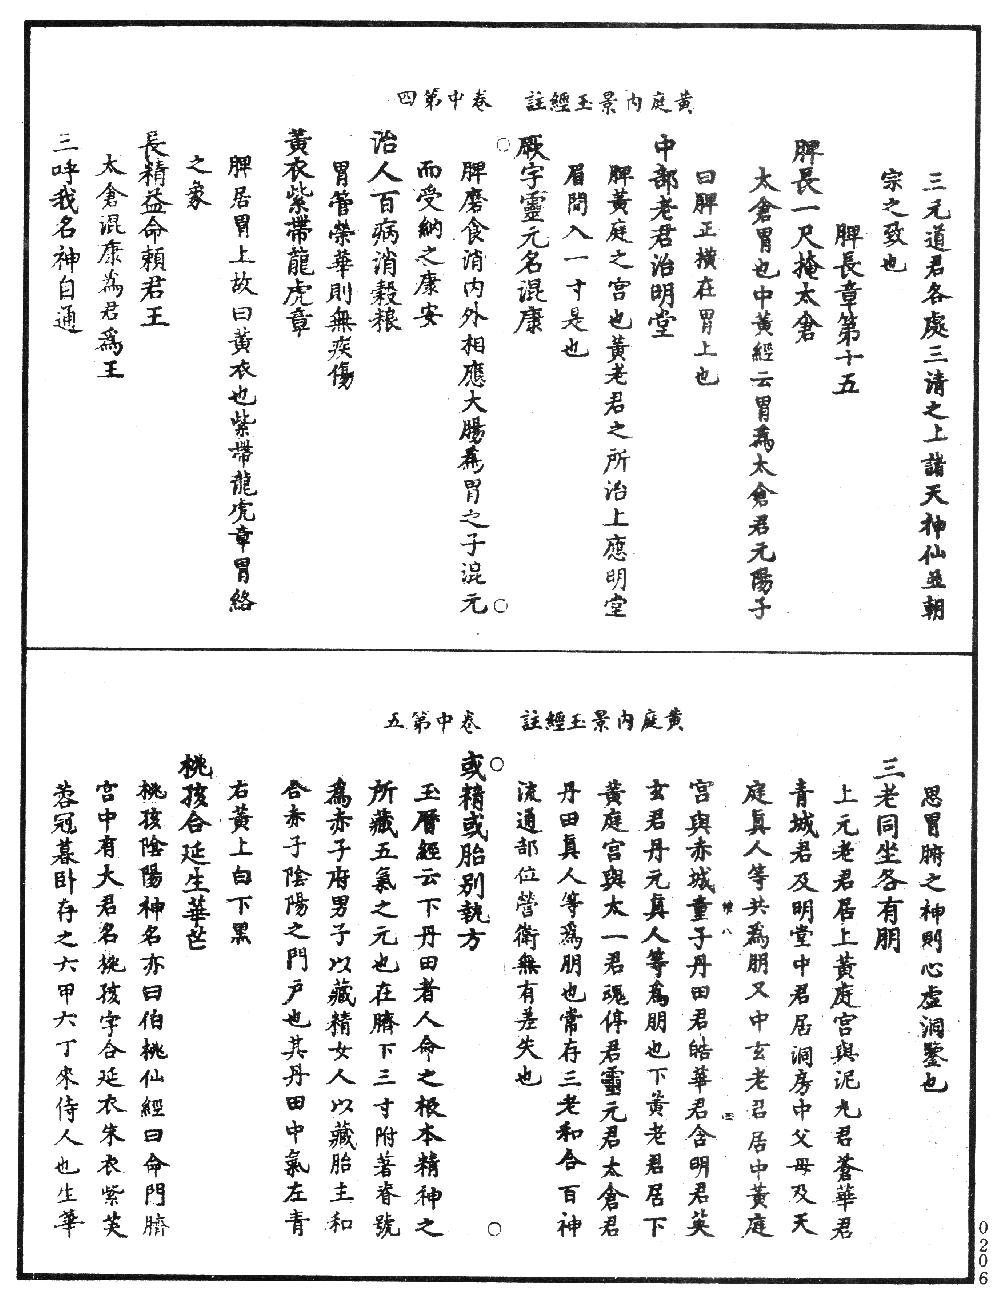 黄庭内景玉經註　卷中第四
三元道君各處三清之上諸天神仙並朝
宗之致也
脾長章第十五
脾長一尺掩太倉
太倉胃也中黄經云胃爲太倉君元陽子
曰脾正橫在胃上也
中部老君治明堂
脾黄庭之宫也黄老君之所治上應明堂
眉間入一寸是也
厥字靈元名混康
脾磨食消内外相應大腸爲胃之子混元
而受納之康安
治人百病消穀粮
胃管榮華則無疾傷
黄衣紫帶龍虎章
脾居胃上故曰黄衣也紫帶龍虎章胃絡
之象
長精益命賴君王
太倉混康爲君爲王
三呼我名神自通
黄庭内景玉經註　卷中第五
思胃腑之神則心虛洞鑒也
三老同坐各有朋
上元老君居上黄庭宫與泥丸君蒼華君
青城君及明堂中君居洞房中父母及天
庭真人等共爲朋又中玄老君居中黄庭
宫與赤城童子丹田君皓華君含明君英
玄君丹元真人等爲朋也下黄老君居下
黄庭宫與太一君魂停君靈元君太倉君
丹田真人等爲朋也常存三老和合百神
流通部位營衛無有差失也
或精或胎别執方
玉曆經云下丹田者人命之根本精神之
所藏五氣之元也在臍下三寸附著脊號
爲赤子府男子以藏精女人以藏胎主和
合赤子陰陽之門户也其丹田中氣左青
右黄上白下黑
桃孩合延生華芒
桃孩陰陽神名亦曰伯桃仙經曰命門臍
宫中有大君名桃孩字合延衣朱衣紫芙
蓉冠暮卧存之六甲六丁來侍人也生華
0206